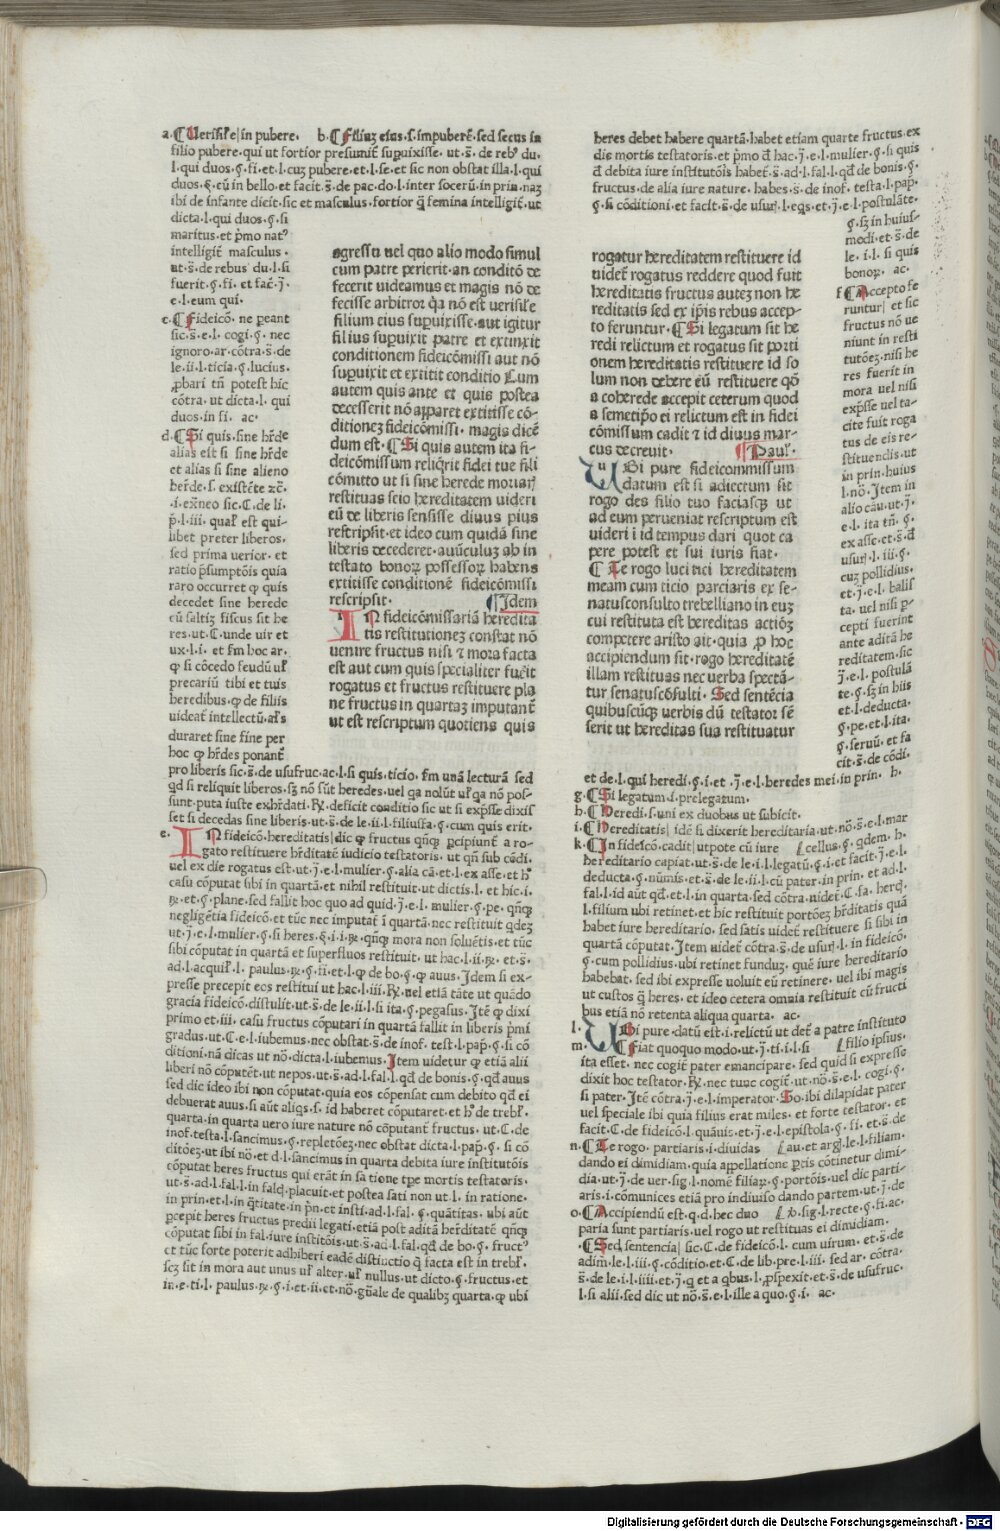 a. ¶ Uerisil'e|in pubere. b. ¶ Filius eius.s.impuberē.sed secus in
filio pubere.qui ut fortior presumit̄ supuixisse.ut.s̄.de reb⁹ du.
l.qui duos.§.fi.et.l.cuꝫ pubere.et.l.se.et sic non obstat illa.l.qui
duos.§.cū in bello.et facit.s̄.de pac.do.l.inter socerū.in prin.naꝫ
ibi de infante dicit.sic et masculus.fortior q̄ femina intelligit̄.ut
dicta.l.qui duos.§.si
maritus.et p̄mo nat⁹
intelligit̄ masculus.
ut.s̄.de rebus du.l.si
fuerit.§.fi.et fac̄.j̄.
e.l.eum qui.
c. ¶ Fideicō.ne peant
sic.s̄.e.l.cogi.§.nec
ignoro.ar.cōtra.s̄.de
le.ii.l.ticia.§.lucius.
ꝓbari tn̄ potest hic
cōtra.ut dicta.l.qui
duos.in fi. ac.
d. ¶ Si quis.sine hr̄de
alias est si sine hr̄de
et alias si sine alieno
her̄de.s.existēte ꝛc̄.
.i.exn̄eo sic.C.de li.
p̄.l.iii.qual' est qui-
libet preter liberos.
sed prima uerior.et
ratio p̄sumptōis quia
raro occurret ꝙ quis
decedet sine herede
cū saltiꝫ fiscus sit he
res.ut.C.unde uir et
ux.l.i.et fm hoc ar.
ꝙ si cōcedo feudū ul'
precariū tibi et tuis
heredibus.ꝙ de filiis
uideat̄ intellectū.al's
duraret sine fine per
hoc ꝙ hr̄des ponant̄
pro liberis sic.s̄.de usufruc.ac.l.si quis.ticio.fm unā lecturā sed
qd si reliquit liberos.sꝫ nō sūt heredes.uel qa nolūt ul'qa nō pos-
sunt.puta iuste exhr̄dati.℞.deficit conditio sic ut si exp̄sse dixis
set si decedas sine liberis.ut.s̄.de le.ii.l.filiusfa.§.cum quis erit.
e. IN fideicō.hereditatis|dic ꝙ fructus qn̄qꝫ pcipiunt̄ a ro-
gato restituere hr̄ditatē iudicio testatoris.ut qn̄ sub cōdi.
uel ex die rogatus est.ut.j̄.e.l.mulier.§.alia cā.et.l.ex asse.et h⁹
casu cōputat sibi in quartā.et nihil restituit.ut dictis.l.et hic.i.
℞.et.§.plane.sed fallit hoc quo ad quid.j̄.e.l.mulier.§.pe.qn̄qꝫ
negligētia fideicō.et tūc nec imputat ī quartā.nec restituit qdeꝫ
ut.j̄.e.l.mulier.§.si heres.§.i.i.℞.qn̄qꝫ mora non soluētis.et tūc
sibi cōputat in quartā et superfluos restituit.ut hac.l.ii.℞.et.s̄.
ad.l.acquir'.l.paulus.℞.§.fi.et.l.ꝙ de bo.§.ꝙ auus.Idem si ex-
presse precepit eos restitui ut hac.l.iii.℞.uel etiā tāte ut quādo
gracia fideicō.distulit.ut.s̄.de le.ii.l.si ita.§.pegasus.Itē ꝙ dixi
primo et.iii.casu fructus cōputari in quartā fallit in liberis p̄mi
gradus.ut.C.e.l.iubemus.nec obstat.s̄.de inof.test.l.pap̄.§.si cō
ditioni.nā dicas ut nō.dicta.l.iubemus.Item uidetur ꝙ etiā alii
liberi nō cōputēt.ut nepos.ut.s̄.ad.l.fal.l.qd.de bonis.§.qd auus
sed dic ideo ibi non cōputat.quia eos cōpensat cum debito qd ei
debuerat auus.si aūt aliqs.s.id haberet cōputaret.et h⁹ de trebl'.
quarta.in quarta uero iure nature nō cōputant̄ fructus.ut.C.de
inof.testa.l.sancimus.§.repletōeꝫ.nec obstat dicta.l.pap̄.§.si cō
ditōeꝫ.ut ibi nō.et d.l.sancimus in quarta debita iure institutōis
cōputat heres fructus qui erāt in sa tione tpe mortis testatoris.
ut.s̄.ad.l.fal.l.in falcꝭ.placuit.et postea sati non ut l.in ratione.
in prin.et.l.in q̄titate.in p̄n.et insti.ad.l.fal.§.quātitas.ubi aūt
pcepit heres fructus predii legati.etiā post aditā hr̄ditatē qn̄qꝫ
cōputat sibi in fal.iure institōis.ut.s̄.ad.l.fal.qd.de bo.§.fruct⁹
et tūc forte poterit adhiberi eadē distinctio q̄ facta est in trebl'.
scꝫ sit in mora aut unus ul' alter.ul' nullus.ut dicto.§.fructus.et
in.e.ti.l.paulus.℞.§.i.et.ii.et.nō.gn̄ale de qualibꝫ quarta.ꝙ ubi
agressu uel quo alio modo simul
cum patre perierit.an conditō de
fecerit uideamus et magis nō de
fecisse arbitror q̇a nō est uerisile
filium eius supuixisse.aut igitur
filius supuixit patre et extinxit
conditionem fideicōmissi aut nō
supuixit et extitit conditio Cum
autem quis ante et quis postea
decesserit nō apparet extitisse cō-
ditioneꝫ fideicōmissi.magis dicē
dum est.¶ Si quis autem ita fi-
deicōmissum reliqrit fidei tue fili
cōmitto ut si sine herede moriar
restituas seio hereditatem uideri
eū de liberis sensisse diuus pius
restripsit.et ideo cum quidā sine
liberis decederet.auūculuꝫ ab in
testato bonoꝝ possessoꝝ habens
extitisse conditionē fideicōmissi
rescripsit. ¶ Idem
IN fideicōmissariā heredita
tis restitutioneꝫ constat nō
uenire fructus nisi ꝛ mora facta
est aut cum quis specialiter fuerit
rogatus et fructus restituere pla
ne fructus in quartaꝫ imputant̄
ut est rescriptum quotiens quis
heres debet habere quartā.habet etiam quarte fructus.ex
die mortis testatoris.et p̄mo d̄ hac.j̄.e.l.mulier.§.si quis
d̄ debita iure institutōis habet̄.s̄.ad.l.fal.l.qd.de bonis.§.
fructus.de alia iure nature.habes.s̄.de inof.testa.l.pap̄.
§.si cōditioni.et facit.s̄.de usur.l.eqs.et.j̄.e.l.postulāte.
§.sꝫ in huius-
modi.et.s̄.de
le.i.l.si quis
bonoꝝ. ac.
f ¶ Accepto fe
runtur|et sic
fructus nō ue
niunt in resti
tutōeꝫ.nisi he
res fuerit in
mora uel nisi
exp̄sse uel ta-
cite fuit roga
tus de eis re-
stituendis.ut
in prin.huius
l.nō.Item in
alio cāu.ut.j̄.
e.l.ita tn̄.§.
ex asse.et.s̄.d̄
usur.l.iii.§.
cuꝫ pollidius.
et.j̄.e.l.balis
ta.uel nisi p-
cepti fuerint
ante aditā he
reditatem.sic
j̄.e.l.postulā
te.§.sꝫ in hiis
et.l.deducta.
§.pe.et.l.ita.
§.seruū.et fa
cit.s̄.de cōdi.
et de.l.qui heredi.§.i.et.j̄.e.l.heredes mei.in prin. h.
g. ¶ Si legatum.s.prelegatum.
h. ¶ Heredi.s.uni ex duobus ut subicit.
i. ¶ Hereditatis|idē si dixerit hereditaria.ut.nō.s̄.e.l.mar
k. ¶ In fideicō.cadit|utpote cū iure [cellus.§.qdem.h.
hereditario capiat.ut.s̄.de le.i.l.legatū.§.i.et facit.j̄.e.l.
deducta.§.nūmis.et.s̄.de le.ii.l.cū pater.in prin.et ad.l.
fal.l.id aūt qd.et.l.in quarta.sed cōtra.uidet̄.C.fa.hercꝭ.
l.filium ubi retinet.et hic restituit portōeꝫ hr̄ditatis quā
habet iure hereditario.sed satis uidet̄ restituere si sibi in
quartā cōputat.Item uidet̄ cōtra.s̄.de usur.l.in fideicō.
§.cum pollidius.ubi retinet funduꝫ.quē iure hereditario
habebat.sed ibi expresse uoluit eū retinere.uel ibi magis
ut custos q̄ heres.et ideo cetera omnia restituit cū fructi
bus etiā nō retenta aliqua quarta. ac.
l. UBi pure.datū est.i.relictū ut det̄ a patre instituto
m. ¶ Fiat quoquo modo.ut.j̄.ti.i.l.si [filio ipsius.
ita esset.nec cogit̄ pater emancipare.sed quid si expresse
dixit hoc testator.℞.nec tunc cogit̄.ut.nō.s̄.e.l.cogi.§.
si pater.Itē cōtra.j̄.e.l.imperator.So.ibi dilapidat pater
uel speciale ibi quia filius erat miles.et forte testator.et
facit.C.de fideicō.l.quāuis.et.j̄.e.l.epistola.§.fi.et.s̄.de
n. ¶ Te rogo.partiaris.i.diuidas [au.et arg̃.le.l.filiam.
dando ei dimidiam.quia appellatione ꝑtis cōtinetur dimi-
dia.ut.j̄.de uer.sig.l.nomē filiaꝝ.§.portōis.uel dic parti-
aris.i.cōmunices etiā pro indiuiso dando partem.ut.j̄.de
o. ¶ Accipiendū est.q.d.hec duo [ꝟ.sig.l.recte.§.fi.ac.
paria sunt partiaris.uel rogo ut restituas ei dimidiam.
. ¶ Sed sentencia|sic.C.de fideicō.l.cum uirum.et.s̄.de
adim.le.l.iii.§.cōditio.et.C.de lib.pre.l.iii.sed ar.cōtra.
s̄.de le.i.l.iiii.et.j̄.q et a qbus.l.ꝓspexit.et.s̄.de usufruc.
l.si alii.sed dic ut nō.s̄.e.l.ille a quo.§.i. ac.
rogatur hereditatem restituere id
uidet̄ rogatus reddere quod fuit
hereditatis fructus auteꝫ non he
reditatis sed ex ip̄is rebus accep-
to feruntur.¶ Si legatum sit he
redi relictum et rogatus sit porti
onem hereditatis restituere id so
lum non debere eū restituere qō
a coherede accepit ceterum quod
a semetip̄o ei relictum est in fidei
cōmissum cadit ꝛ id diuus mar-
cus decreuit. ¶ Paul'.
UBi pure fideicommissum
datum est si adiectum sit
rogo des filio tuo faciasqꝫ ut
ad eum perueniat rescriptum est
uideri ī id tempus dari quot ca
pere potest et sui iuris fiat.
¶ Te rogo luci tici hereditatem
meam cum ticio parciaris ex se-
natusconsulto trebelliano in euꝫ
cui restituta est hereditas actiōꝫ
competere aristo ait.quia ꝓ hoc
accipiendum sit.rogo hereditatē
illam restituas nec uerba spectā-
tur senatuscōsulti.Sed sentēcia
quibuscūqꝫ uerbis dū testator sē
serit ut hereditas sua restituatur
Digitalisierung gefördert durch die Deutsche Forschungsgemeinschaft - DFG